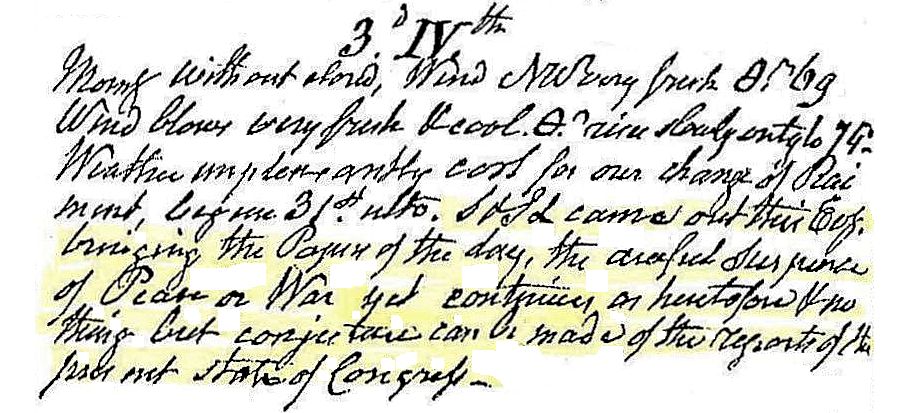 3.d IVth
Morng without cloud, Wind NW very fresh Thr 69
Wind blows very fresh & cool. Thr rises slowly only to 75-
Weather unpleasantly cool for our change of Rai
ment, begun 31st ulto. S & SL came out this Evg.
bringing the Papers of the day, the awful suspence
of Peace or War yet continues as heretofore & no
thing but conjecture can be made of the reports of the
present state of Congress-